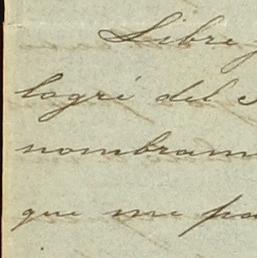 Libre
logré del
nombram
que me pa